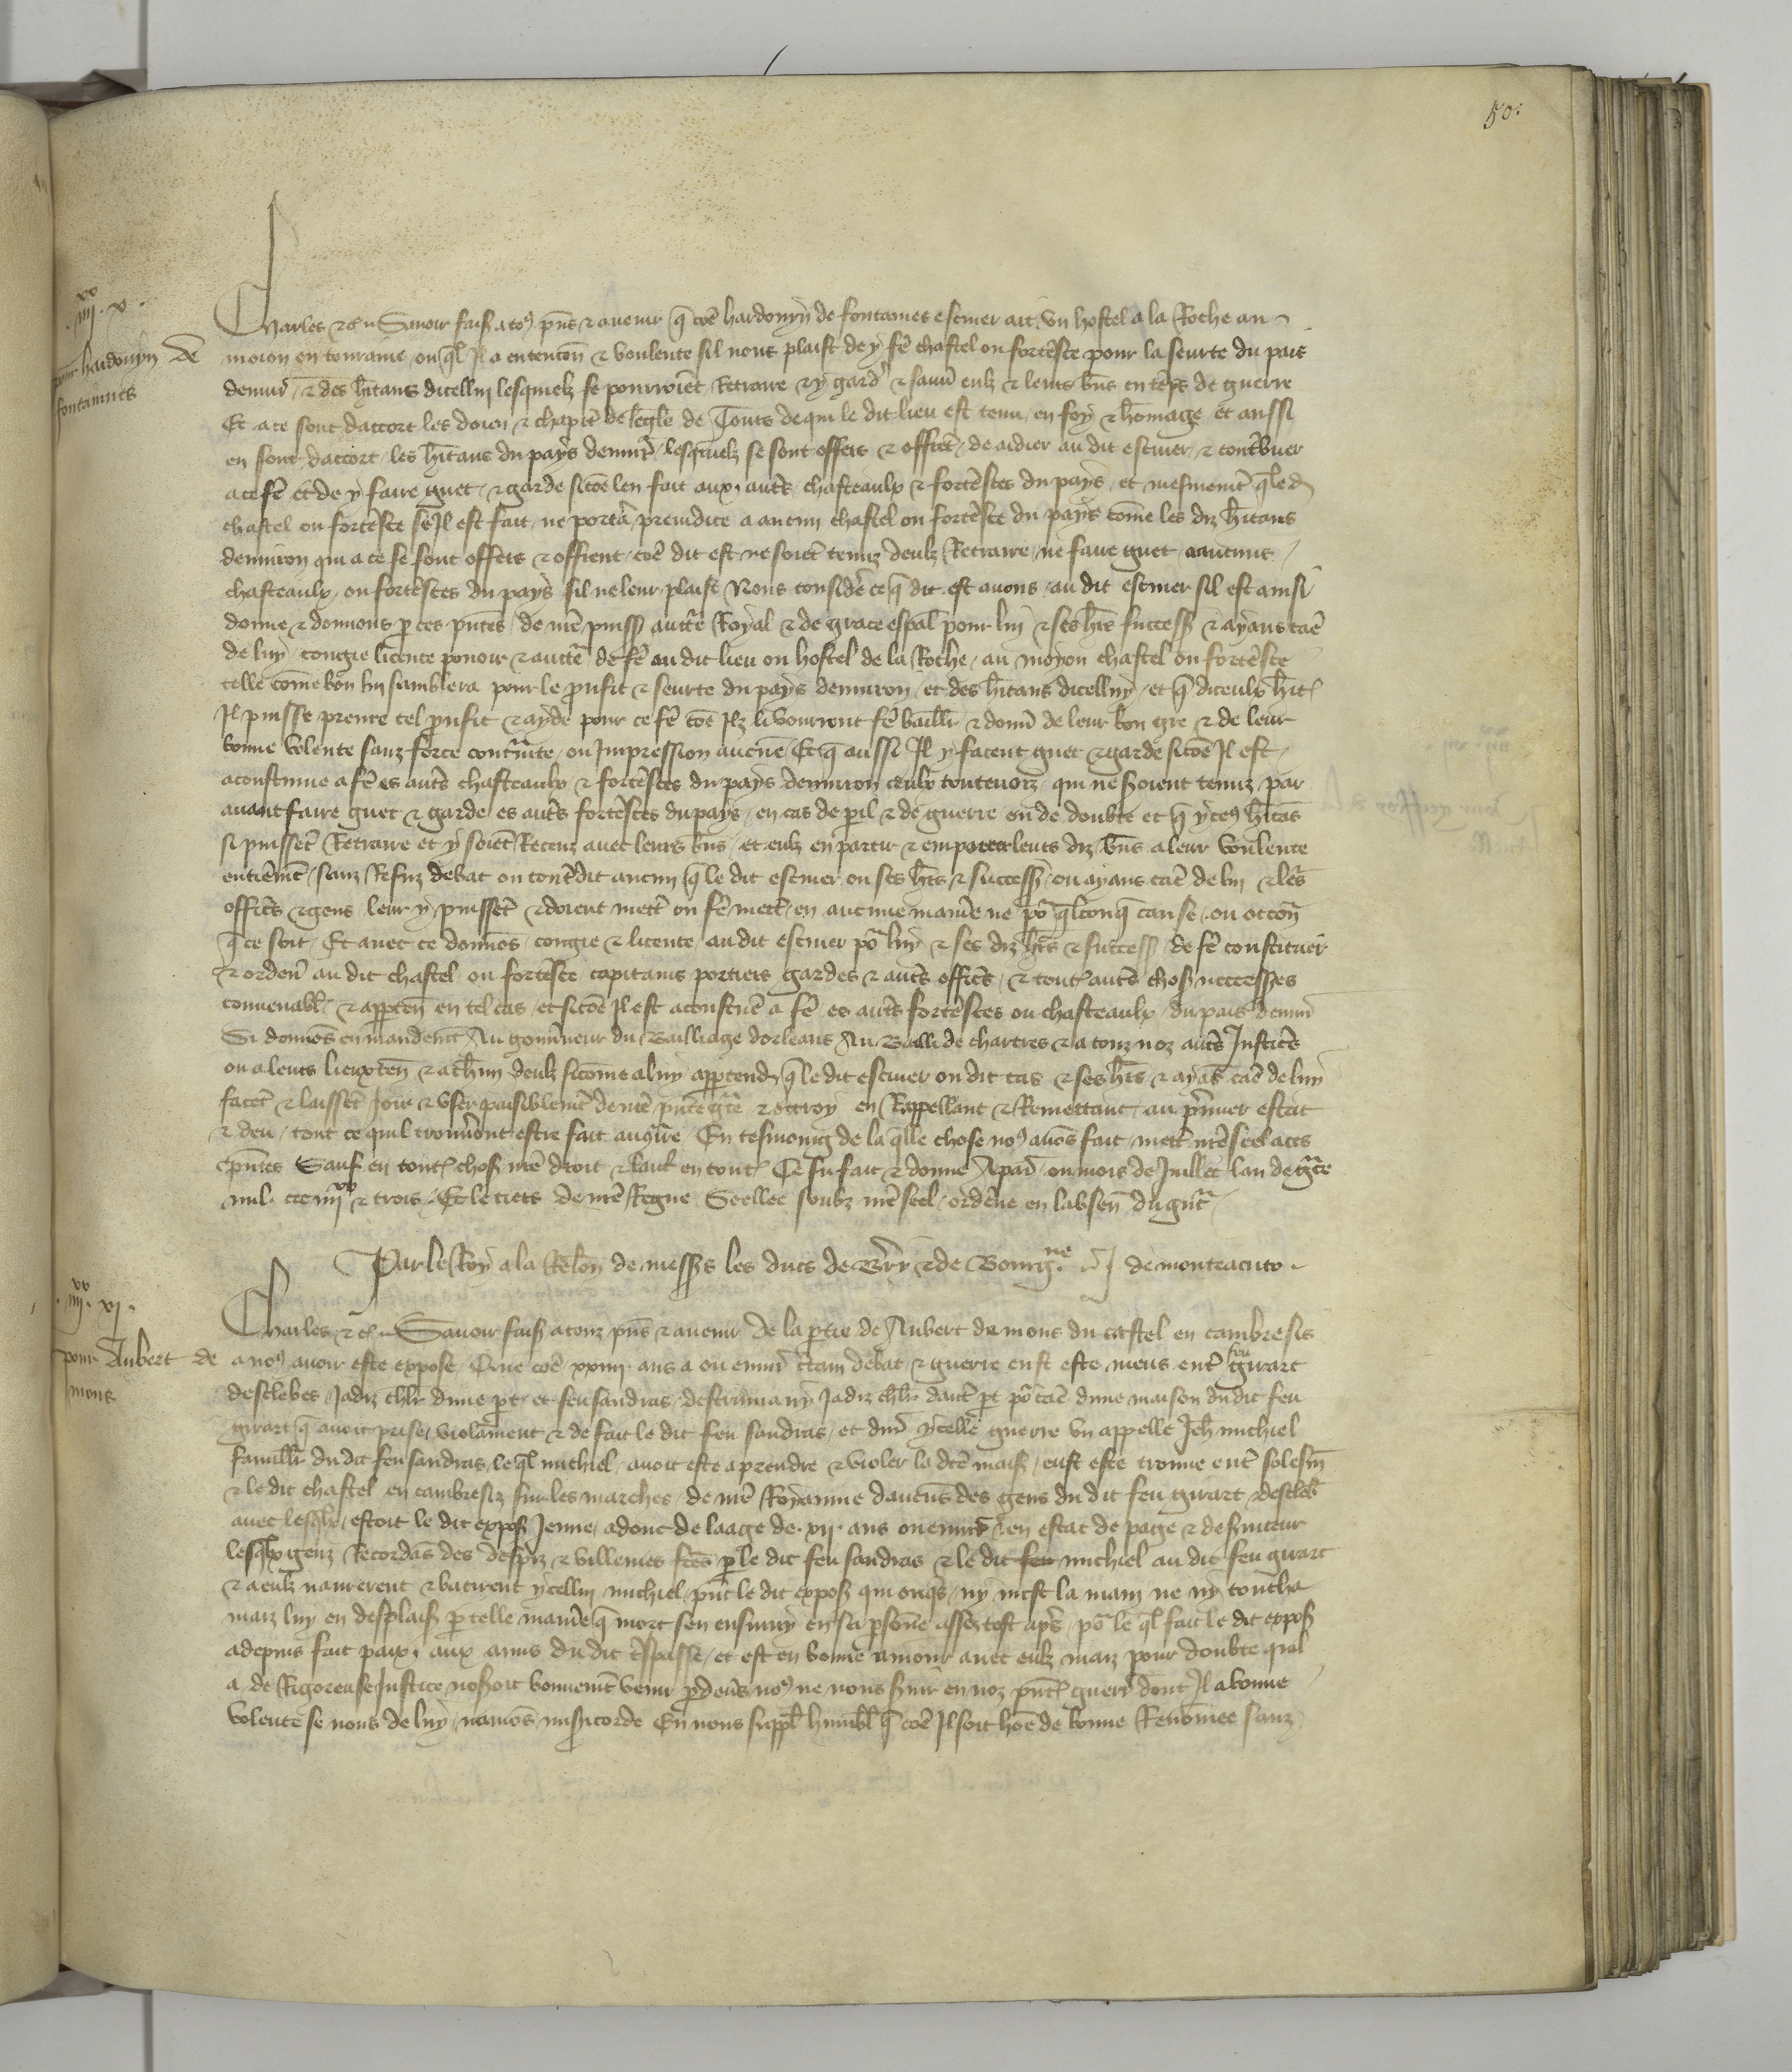 50.
iiii xx x.
pour hardouyn de
fontaines
Charles &c. Savoir faiſ a toꝰ pn̄s & avenir q̄ cōe hardouyn de fontaines escuier ait un hostel a la Roche au
moion en touraine ou ql̄ Il a entencōn & voulente sil nous plaist de y fe chastel ou fortesce pour la seurte du pais
denviron & des hītans dicelluy lesquielx se pourroiēt Retraire & y gard̄ & sauv̄ eulx & leurs biens en tēps de guerre
Et a ce sont daccort les doien & chapit̄ de leglē de Tours de qui le dit lieu est tenu en foy & hōmage et aussi
en sont daccort les hītans du pays denviron lesquielx se sont offers & offrēt de aidier au dit escuier & contbuer
a ce fē et de y faire guet & garde sicōe len fait aux autrs chasteaulx & fortesces du pays et mesmemēt q̄ led
chastel ou fortesce se Il est fait ne portā preiudice a aucun chastel ou fortesce du pays cōme les diz hītans
denviron qui a ce se sont offers & offrent cōe dit est ne soiēt tenuz deulx Retraire ne faire guet a aucuns
chasteaulx ou fortesces du pays sil ne leur plaist Nous considē ce q̄ dit est avons au dit escuier sil est ainsi
donne & donnons p ces pn̄tes de nrē puiss auctē Royal & de grace espāl pour lui & ses hrs success & ayans cāe
de luy congie licence povoir & auctē de fē ou dit lieu ou hostel de la Roche au moyon chastel ou fortesce
telle cōme bon lui samblera pour le proufit & seurte du pays denviron et des hītans dicelluy et q̄ diceulx hīt
Il puisse prenre tel proufit & ayde pour ce fē cōe Ilz li vourront fē baillr & donn̄ de leur bon gre & de leur
bonne volente sanz force contrainte ou Impression aucune Et q̄ aussi Il y facent guet & garde sicōe Il est
acoustume a fē es autrs chasteaulx & fortesces du pays denviron ceulx toutevoiz qui ne soient tenuz par
avant faire guet & garde es autrs fortesces du pays en cas de pil & de guerre ou de doubte et q̄ yceꝰ hītās
si puissēt Retraire et y soiēt Receuz avec leurs biens et eulx en partir & emporter leurs diz biens a leur voulente
entierēmt sanz Refuz debat ou contdit aucun q̄ le dit escuier ou ses hrs & success ou ayans cāe de lui & lrs
officrs & gens leur y puissēt & doient mett̄ ou fē mett̄ en aucune manie ne po qlconq̄ cause ou occōn
q̄ ce soit Et avec ce donnōs congie & licence au dit escuier po luy & ses diz hrs & success de fē constituer
& orden̄ au dit chastel ou fortesce capitains portiers gardes & autrs officrs & tout autrs choſ neccesses
convenabl & apptēn en tel cas et sicōe Il est acoustūē a fē es autrs fortesces ou chasteaulx du pais denvir
Si donnōs en mandemēt Au gouvneur du Bailliage dorleans Au Bailli de chartres & a touz noz autrs Justicrs
ou a leurs lieuxtēn & a chūn deulx sicōme a luy apptend q̄ le dit escuier ou dit cas & ses hrs & ayās cāe de luy
facēt & laissēt Joir & user paisiblemēt de nrē pn̄te grace & ottroy en Rappellant & Remettant au prmier estat
& deu tout ce quil trouvront estre fait au gtre En tesmoing de la q̄lle chose noꝰ avōs fait mett̄ nrē seel a ces
pn̄tes Sauf en tout choſ nrē droit & lautr en tout Ce fu fait & donne A paris ou mois de Juillet lan de grace
mil ccc iiii xx & trois Et le tiers de nrē Regne Seellee soubz nrē seel ordēne en labsen̄ du grāt
Par le Roy a la Relōn de messrs les ducs de Bry & de Bourgne J de monteacuto
iiii xx xi.
pour Aubert de
mons
Charles &c. Savoir faiſ a touz pn̄s & avenir de la ptie de Aubert de mons du castel en cambresis
a noꝰ avoir este expose Que cōe xxiiii ans a ou envir ctain debat & guerre eust este meus entr feu girart
desclebes Jadiz chlr dune pt et feu sandras destrumany Jadiz chlr dautr pt po cāe dune maison du dit feu
girart q̄ avoit prise violāment & de fait le dit feu sandras et dur ycelle guerre un appelle Jeh michiel
famillr du dit feu sandras le ql michiel avoit este a prendre & violer la dcē maiſ eust este trouve entr solesm
& le dit chastel en cambresiz sur les marches de nrē Royaume daucuns des gens du dit feu girart desclebes
avec lesqlx estoit le dit expoſ Jeune adonc de laage de xii ans ou envir & en estat de page & de Sviteur
lesqlx genz Recordās des despiz & villenies fcēs p le dit feu sandras & le dit michiel au dit feu girart
& a eulx navrerent & batirent ycellui michiel pn̄t le dit expoſ qui onqs ny mist la main ne ny toucha
maiz luy en desplaiſ p telle manie q̄ mort sen ensuivy en sa psōne assez tost aps po le ql fait le dit expoſ
a depuis fait paix aux amis du dit trspasse et est en bonne amour avec eulx maiz pour doubte quil
a de Rigoreuse Justice noſoit bonnemēt venir p devs noꝰ ne nous Svir en noz pn̄t guerrs dont Il a bonne
volente se nous de luy navōs misicorde En nous supplt humblt q̄ cōe Il soit hōe de bonne Renōmee sanz